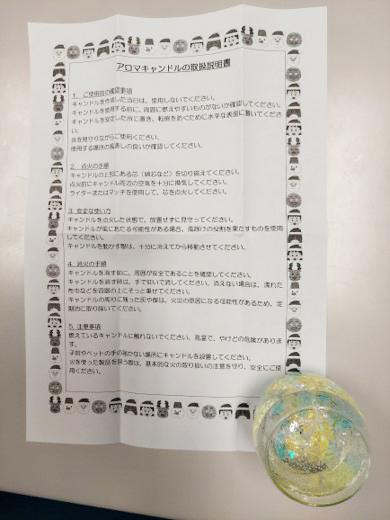 アロマキャンドルの取扱説明書
1. ご使用前の確認事項
キャンドルを作成した当日は、使用しないでください。
キャンドルを使用する前に、周囲に燃えやすいものがないか確認してください。
キャンドルを安定した所に置き、転倒を防ぐために水平な表面に置いてくださ
い。
炎を見守りながらご使用ください。
使用する場所の風通しの良いか確認してください。
2. 点火の手順
キャンドルの上部にある芯（綿芯など）を切り揃えてください。
点火前にキャンドル周辺の空気を十分に換気してください。
ライターまたはマッチを使用して、芯を点火してください。
3. 安全な使い方
キャンドルを点火した状態で、放置せずに見守ってください。
キャンドルが風にあたる可能性がある場合、風除けの役割を果たすものを使用
してください。
キャンドルを動かす際は、十分に消えてから移動させてください。
4. 消火の手順
キャンドルを消す前に、周囲が安全であることを確認してください。
キャンドルを消す際は、手で扇いで消してください。消えない場合は、濡れた
布巾などを容器の上にそっと乗せてください。
キャンドルの周りに残った灰や煤は、火災の原因になる可能性があるため、定
期的に取り除いてください。
5. 注意事項
燃えているキャンドルに触れないでください。高温で、やけどの危険がありま
す。
子供やペットの手の届かない場所にキャンドルを設置してください。
火を使った製品を扱う際は、基本的な火の取り扱いの注意を守り、安全にご使
用ください。